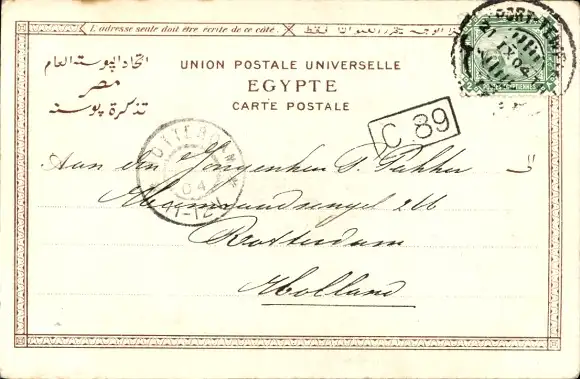 L'adresse seule doit être écrite de ce côté.
اتحاد البوستة العام
مصر
تذكرة بوستة
UNION POSTALE UNIVERSELLE
EGYPTE
CARTE POSTALE
PORT-TEWFIK
IX 04
C 89
ROTTERDAM
04
11-12
Aan den Jongenheer P. Pakker
266
Rotterdam
Holland